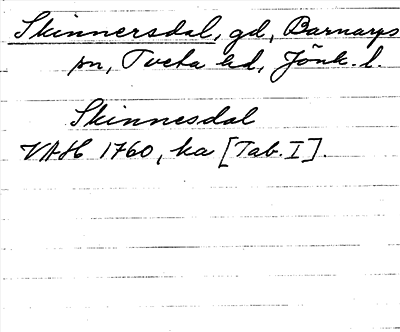 Skinnersdal, gd, Barnarps
sn, Tveta hd, Jönk. l.
Skinnesdal
VAH 1760, ka [Tab. I].